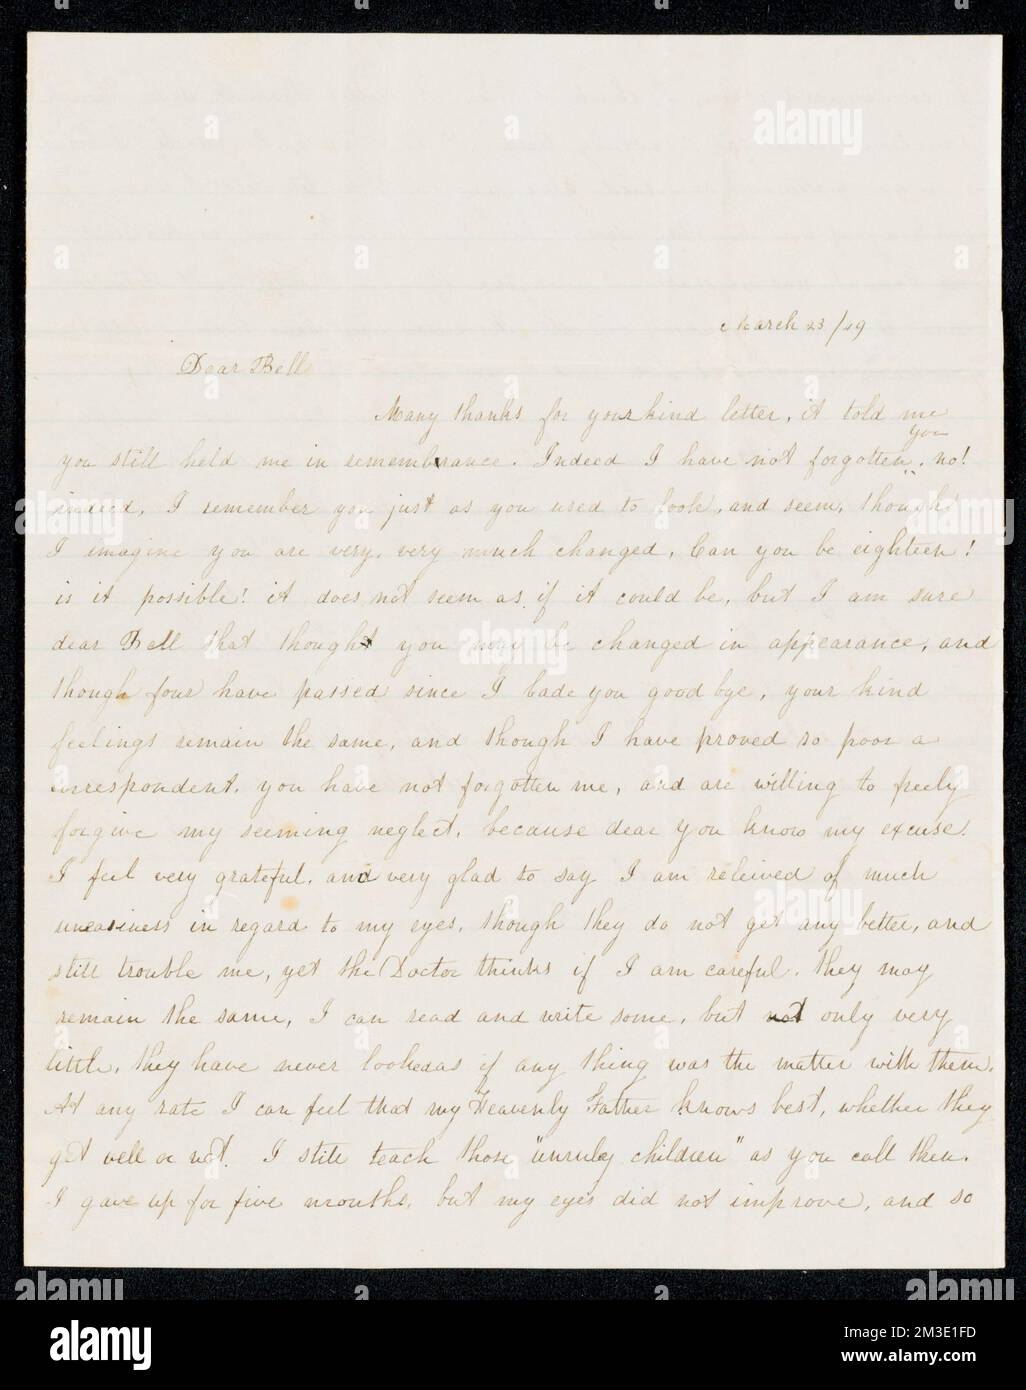 March 23/49
Dear Bell
Many thanks for your kind letter, it told me
you
you still held me in remembrance. Indeed I have not forgotten, no!
indeed, I remember you just as you used to look, and seem, though
I imagine you are very, very much changed, Can you be eighteen!
is it possible! it does not seem as if it could be, but I am sure
dear Bell that thought you may be changed in appearance, and
though four have passed since I bade you good bye, your kind
feelings remain the same, and though I have proved so poor a
correspondent, you have not forgotten me, and are willing to freely
forgive my seeming neglect, because dear you know my excuse.
I feel very grateful, and very glad to say I am releived of much
uneasiness in regard to my eyes, though they do not get any better, and
still trouble me, yet the Doctor thinks if I am careful, they may
remain the same, I can read and write some, but not only very
little, they have never looked as if any thing was the matter with them.
At any rate I can feel that my Heavenly Father knows best, whether they
get well or not. I still teach those "unruly children" as you call them.
I gave up for five months, but my eyes did not improve, and so
alamy
Image ID: 2M3E1FD
www.alamy.com